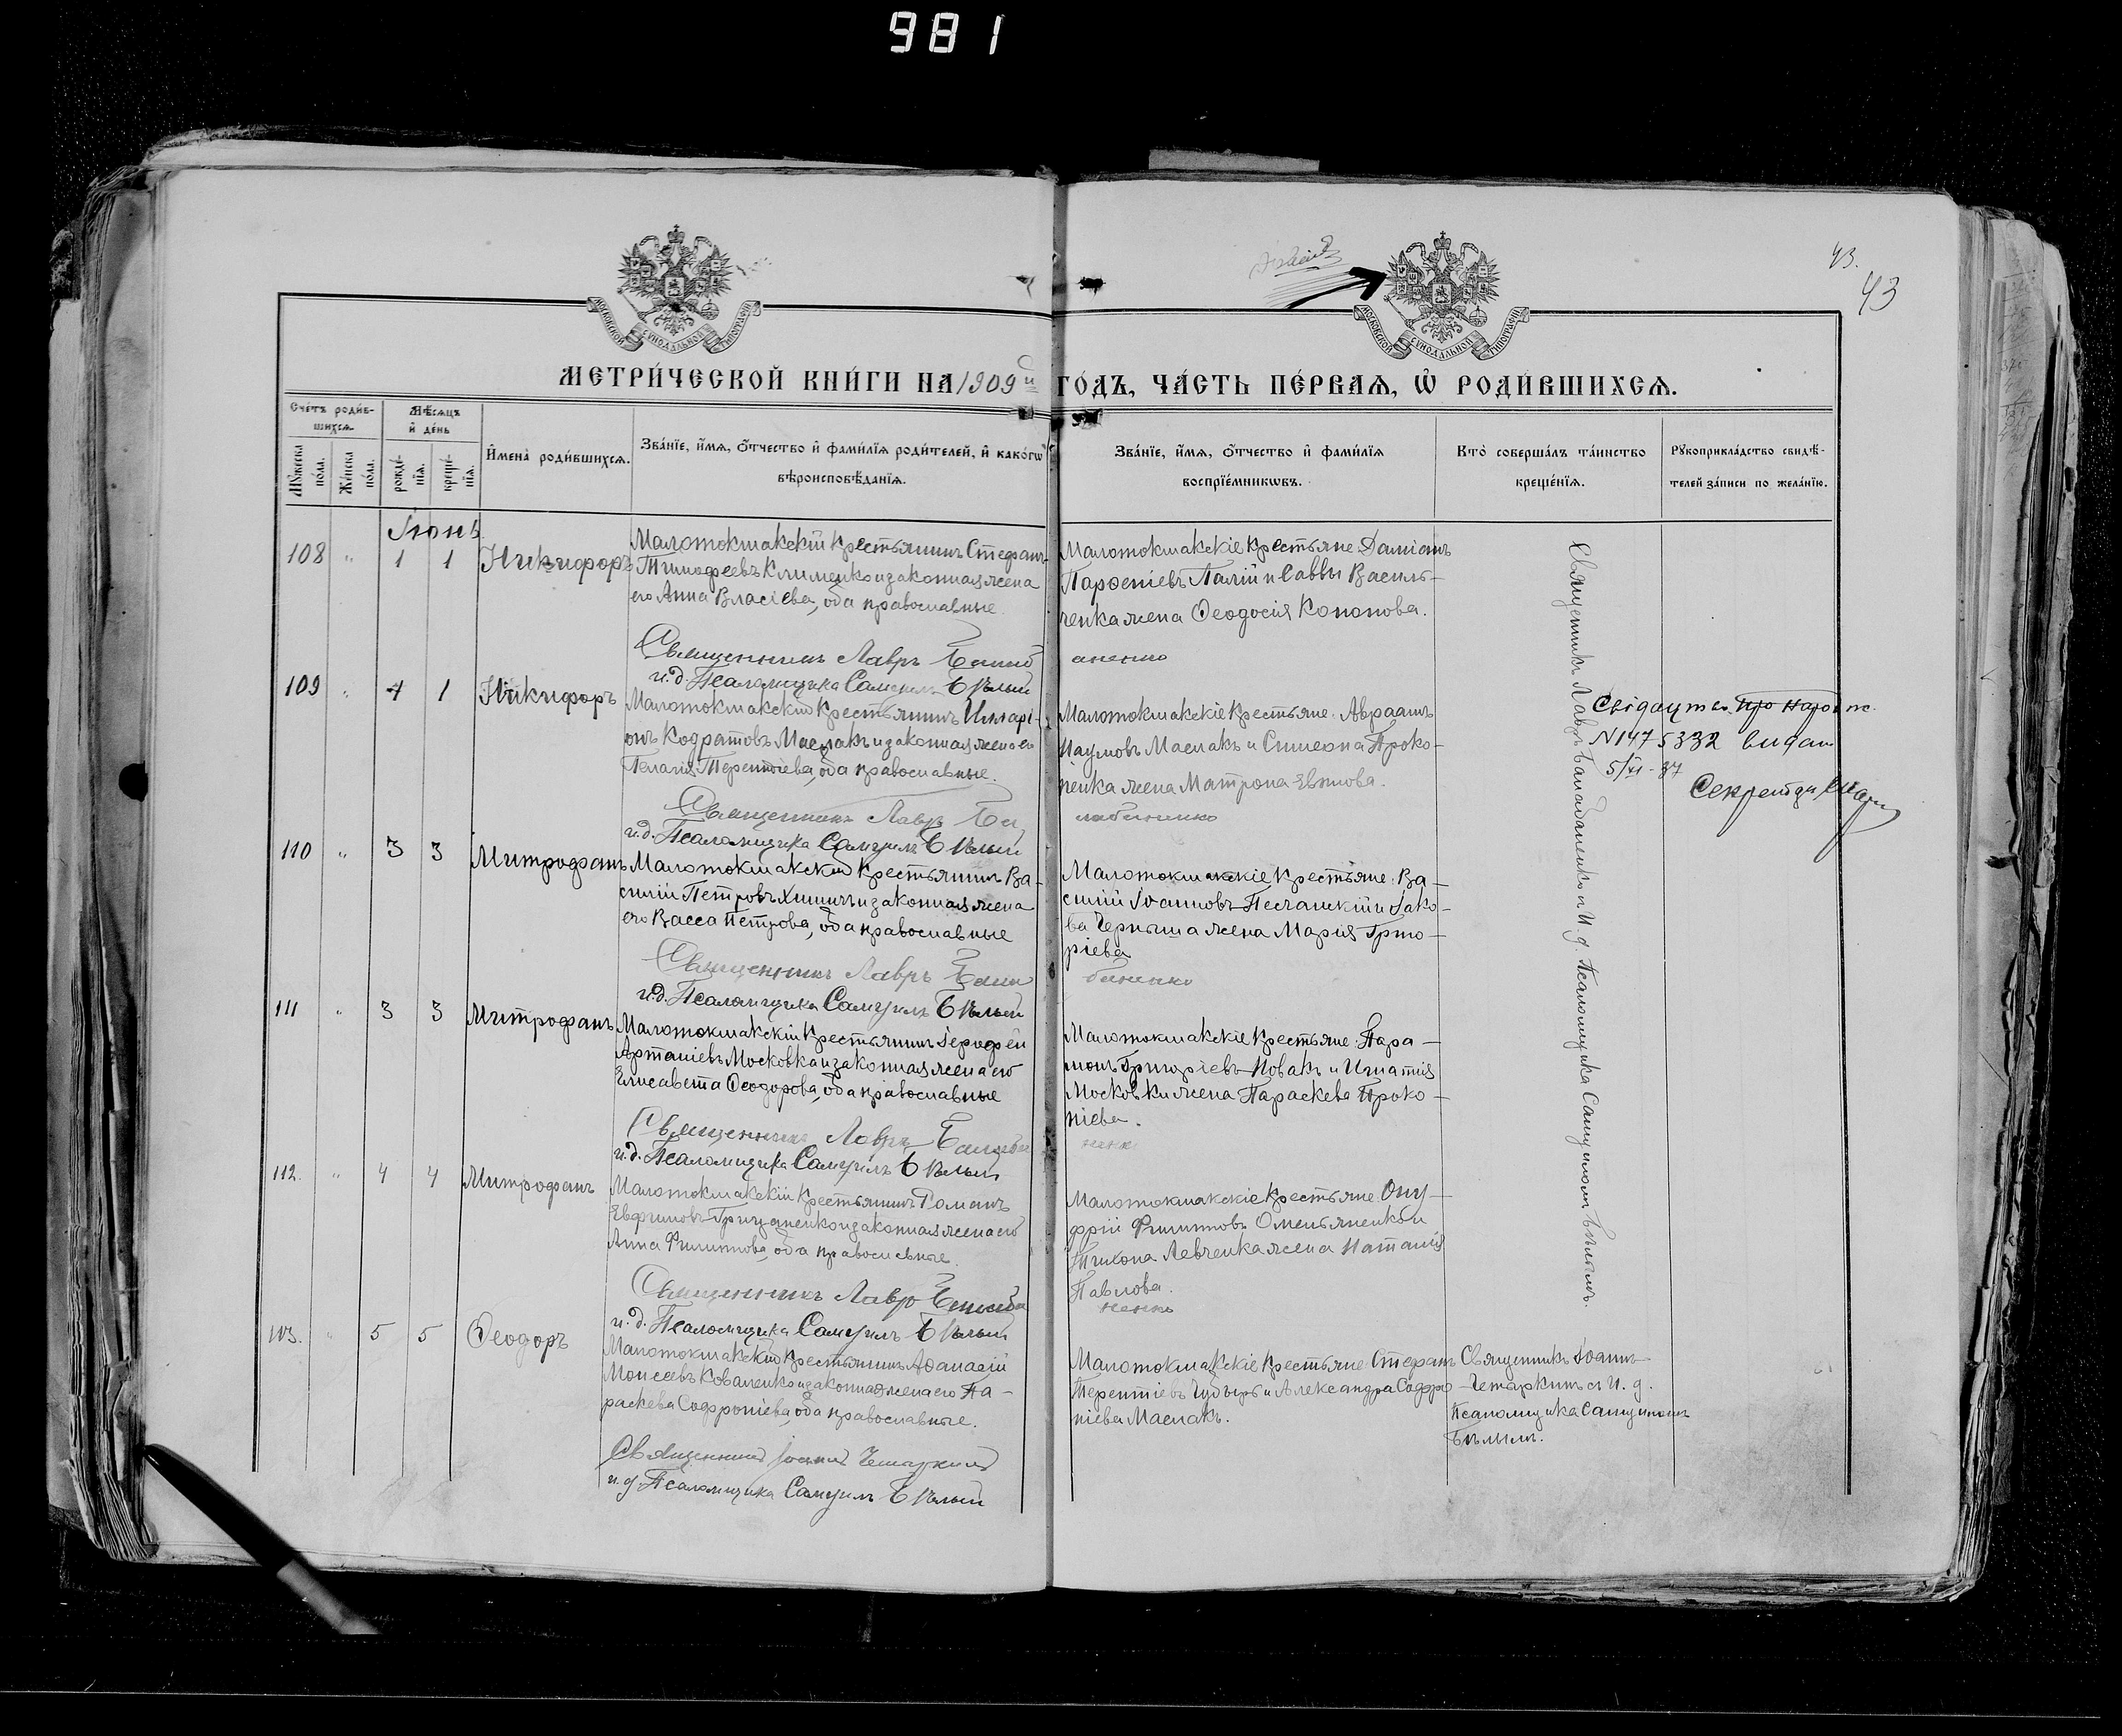 981
43.
43
МОСКОВСКОЙ СѴНОДАЛЬНОЙ ТИПОГРАФІИ
МОСКОВСКОЙ СѴНОДАЛЬНОЙ ТИПОГРАФІИ
МЕТРИ́ЧЕСКОЙ КНИ́ГИ НА 1909й ГО́ДЪ, ЧА́СТЬ ПЕ́РВАЯ, Ѽ РОДИ́ВШИХСЯ.
Сче́тъ роди́в-
шихся.
Мѣ́сяцъ
и҆ де́нь
Мꙋ́жеска
по́ла.
Же́нска
по́ла.
рожде́-
нїя.
креще́-
нїя.
И҆мена̀ роди́вшихся.
Зва́нїе, и҆́мя, ѻ҆́тчество и҆ фами́лїя роди́телей, и҆ како́гѡ
вѣроисповѣ́данїя.
Зва́нїе, и҆́мя, ѻ҆́тчество и҆ фами́лїя
воспрїе́мникѡвъ.
Кто̀ соверша́лъ та́инство
креще́нїя.
Рꙋкоприкла́дство свидѣ́-
телей за́писи по жела́нїю.
Іюнь
108 " 1 1 Никифоръ
Малотокмакскій крестьянинъ Стефанъ
Тимофеевъ Клименко и законная жена
его Анна Власіева, оба православные.
Малотокмакскіе крестьяне: Даміанъ
Парѳеніевъ Палій и Саввы Василь-
ченка жена Ѳеодосія Кононова.
Священникъ Лавръ Балаб
аненко
и.д. Псаломщика Самуилъ Бѣлый
109 " 1 1 Никифоръ
Малотокмакскій крестьянинъ Иларі-
онъ Кодратовъ Маслакъ и законная жена его
Пелагія Терентіева, оба православные.
Малотокмакскіе крестьяне: Авраамъ
Наумовъ Маслакъ и Симеона Проко-
пенка жена Матрона Евѳимова.
Свідоцтво про народж.
N1475332 видан
5/XI-37
Секретар
Священникъ Лавръ Ба
лабаненко
и.д. Псаломщика Самуилъ Бѣлый
110 " 3 3 Митрофанъ
Малотокмакскій крестьянинъ Ва-
силій Петровъ Химичъ и законная жена
его Васса Петрова, оба православные
Малотокмакскіе крестьяне: Ва-
силій Іоанновъ Песчанскій и Іако-
ва Черныша жена Марія Григо-
ріева
Священникъ Лавръ Бала
баненко
и.д. Псаломщика Самуилъ Бѣлый
111 " 3 3 Митрофанъ
Малотокмакскій крестьянинъ Іерофей
Артаміевъ Московка и законная жена его
Елисавета Ѳеодорова, оба православные
Малотокмакскіе крестьяне: Пара-
монъ Григоріевъ Новакъ и Игнатія
Московки жена Параскева Проко-
піева.
Священникъ Лавръ Балаба
ненко
и.д. Псаломщика Самуилъ Бѣлый
112. " 4 4 Митрофанъ
Малотокмакскій крестьянинъ Романъ
Евфимовъ Грицаненко и законная жена его
Анна Филиппова, оба православные.
Малотокмакскіе крестьяне: Ону-
фрій Филипповъ Омельяненко и
Тихона Левченка жена Наталія
Павлова.
Священникъ Лавръ Балаба
ненко
и.д. Псаломщика Самуилъ Бѣлый
Священникъ Лавръ Балабаненко и И. д. Псаломщика Самуиломъ Бѣлымъ.
113. " 5 5 Ѳеодоръ
Малотокмакскій крестьянинъ Аѳанасій
Моисеевъ Коваленко и законная жена его Па-
раскева Софроніева, оба православные.
Малотокмакскіе крестьяне: Стефанъ
Терентіевъ Чубырь и Александра Софро-
ніева Маслакъ.
Священникъ Іоаннъ
Чемаркинъ съ И. д.
Псаломщика Самуиломъ
Бѣлымъ.
Священникъ Іоаннъ Чемаркинъ
и.д. Псаломщика Самуилъ Бѣлый